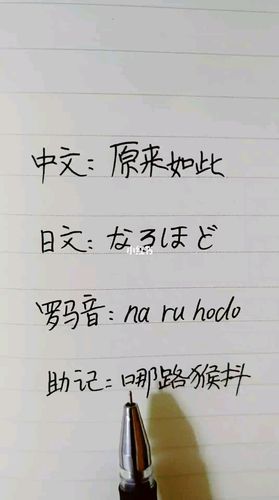 中文：原来如此
日文：なろほど
小红书
罗马音：na ru hodo
助记：哪路猴抖